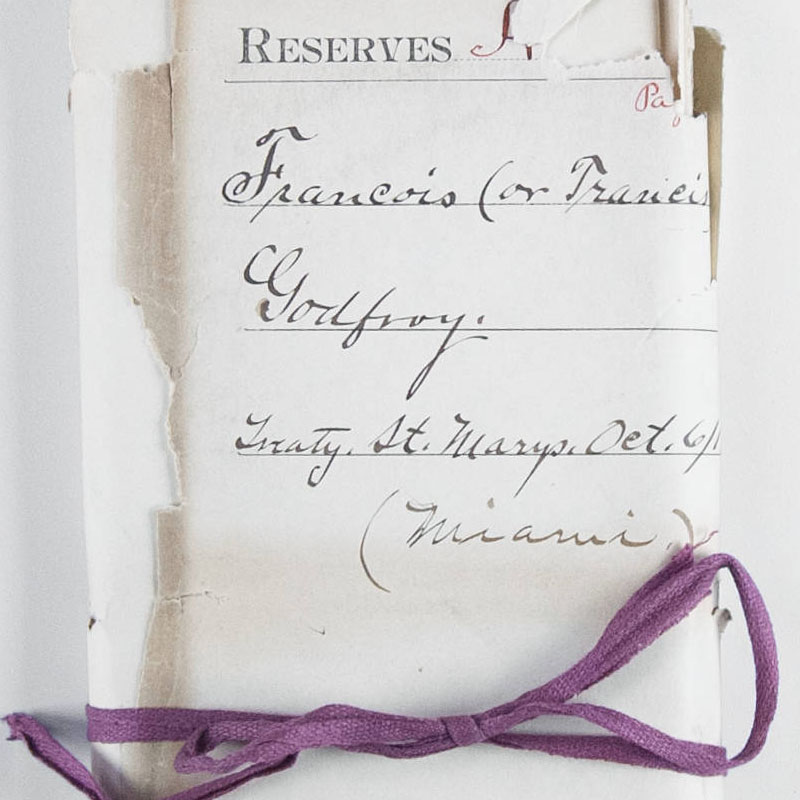 RESERVES
Pa
Francois (or Francis
Godfroy.
Treaty. St. Marys. Oct. 6/1
(Miami.)